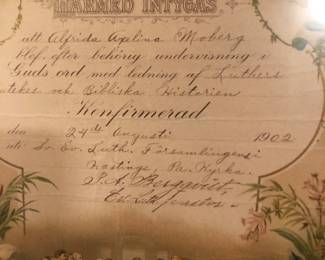 HÄRMED INTYGAS
att Alfrida Axelina Moberg
blef, efter behörig undervisning i
Guds ord med ledning af Luthers
atekes och Bibliska Historien
Konfirmerad
den 24de Augusti 1902
uti Sv. Ev. Luth. Församlingens i
Hastings, Pa. Kyrka.
Bergqvist
Ev. Luth. Pastor.